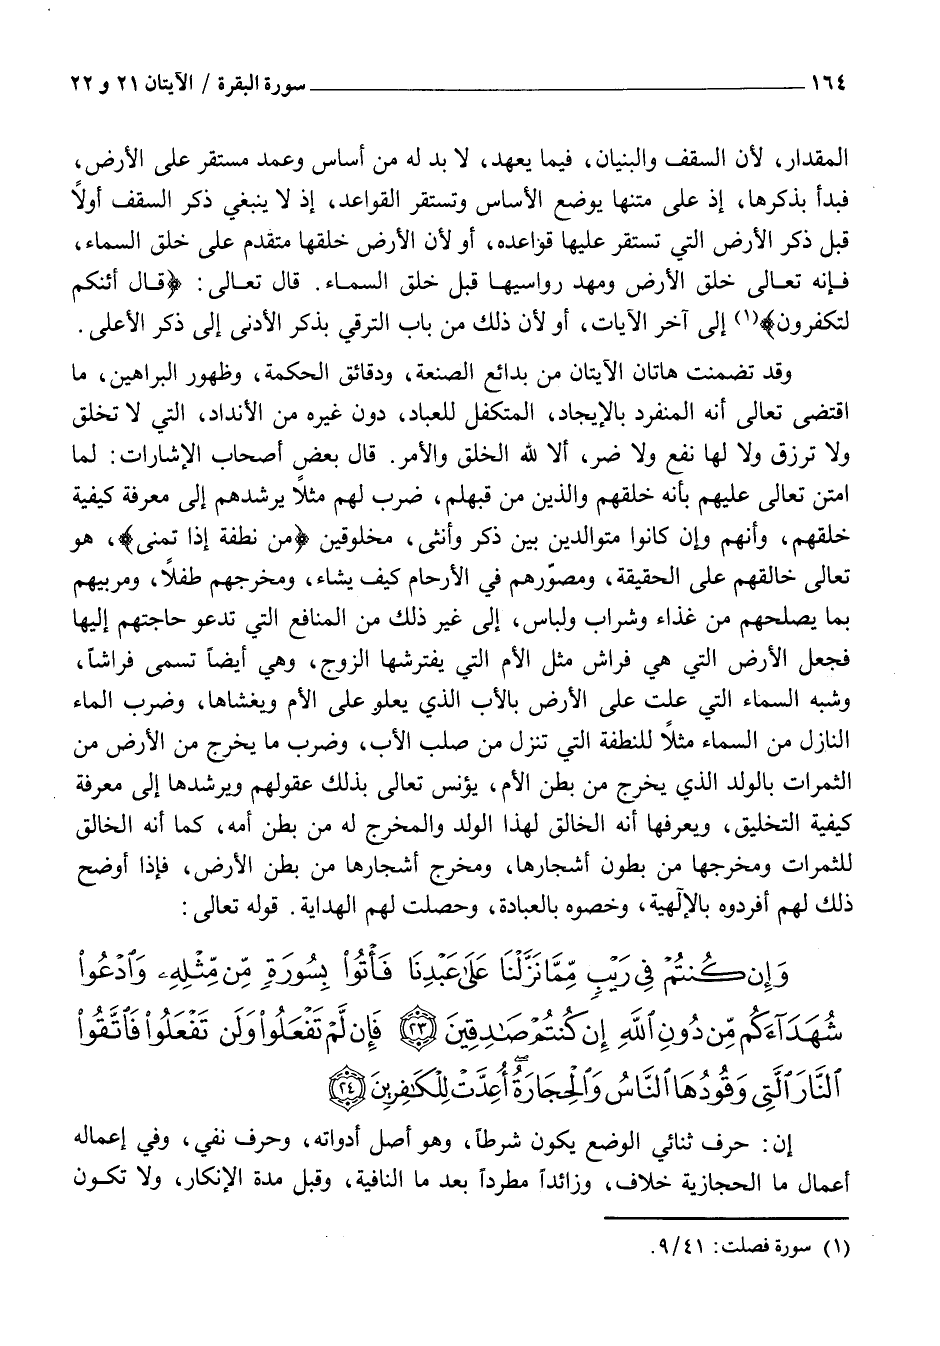 ١٦٤ سورة البقرة / الآيتان ٢١ و ٢٢
المقدار، لأن السقف والبنيان، فيما يعهد، لا بد له من أساس وعمد مستقر على الأرض،
فبدأ بذكرها، إذ على متنها يوضع الأساس وتستقر القواعد، إذ لا ينبغي ذكر السقف أولاً
قبل ذكر الأرض التي تستقر عليها قواعده، أو لأن الأرض خلقها متقدم على خلق السماء،
فإنه تعالى خلق الأرض ومهد رواسيها قبل خلق السماء. قال تعالى: ﴿قال أئنكم
لتكفرون﴾(١) إلى آخر الآيات، أو لأن ذلك من باب الترقي بذكر الأدنى إلى ذكر الأعلى.
وقد تضمنت هاتان الآيتان من بدائع الصنعة، ودقائق الحكمة، وظهور البراهين، ما
اقتضى تعالى أنه المنفرد بالإيجاد، المتكفل للعباد، دون غيره من الأنداد، التي لا تخلق
ولا ترزق ولا لها نفع ولا ضر، ألا لله الخلق والأمر. قال بعض أصحاب الإشارات: لما
امتن تعالى عليهم بأنه خلقهم والذين من قبلهم، ضرب لهم مثلاً يرشدهم إلى معرفة كيفية
خلقهم، وأنهم وإن كانوا متوالدين بين ذكر وأنثى، مخلوقين ﴿من نطفة إذا تمنى﴾، هو
تعالى خالقهم على الحقيقة، ومصوّرهم في الأرحام كيف يشاء، ومخرجهم طفلاً، ومربيهم
بما يصلحهم من غذاء وشراب ولباس، إلى غير ذلك من المنافع التي تدعو حاجتهم إليها
فجعل الأرض التي هي فراش مثل الأم التي يفترشها الزوج، وهي أيضاً تسمى فراشاً،
وشبه السماء التي علت على الأرض بالأب الذي يعلو على الأم ويغشاها، وضرب الماء
النازل من السماء مثلاً للنطفة التي تنزل من صلب الأب، وضرب ما يخرج من الأرض من
الثمرات بالولد الذي يخرج من بطن الأم، يؤنس تعالى بذلك عقولهم ويرشدها إلى معرفة
كيفية التخليق، ويعرفها أنه الخالق لهذا الولد والمخرج له من بطن أمه، كما أنه الخالق
للثمرات ومخرجها من بطون أشجارها، ومخرج أشجارها من بطن الأرض، فإذا أوضح
ذلك لهم أفردوه بالإلٰهية، وخصوه بالعبادة، وحصلت لهم الهداية. قوله تعالى:
وَإِن كُنتُمْ فِي رَيْبٍ مِّمَّا نَزَّلْنَا عَلَىٰ عَبْدِنَا فَأْتُوا۟ بِسُورَةٍ مِّن مِّثْلِهِۦ وَٱدْعُوا۟
شُهَدَآءَكُم مِّن دُونِ ٱللَّهِ إِن كُنتُمْ صَـٰدِقِينَ ٢٣ فَإِن لَّمْ تَفْعَلُوا۟ وَلَن تَفْعَلُوا۟ فَٱتَّقُوا۟
ٱلنَّارَ ٱلَّتِي وَقُودُهَا ٱلنَّاسُ وَٱلْحِجَارَةُ ۖ أُعِدَّتْ لِلْكَـٰفِرِينَ ٢٤
إن: حرف ثنائي الوضع يكون شرطاً، وهو أصل أدواته، وحرف نفي، وفي إعماله
أعمال ما الحجازية خلاف، وزائداً مطرداً بعد ما النافية، وقبل مدة الإنكار، ولا تكون
(١) سورة فصلت: ٩/٤١.